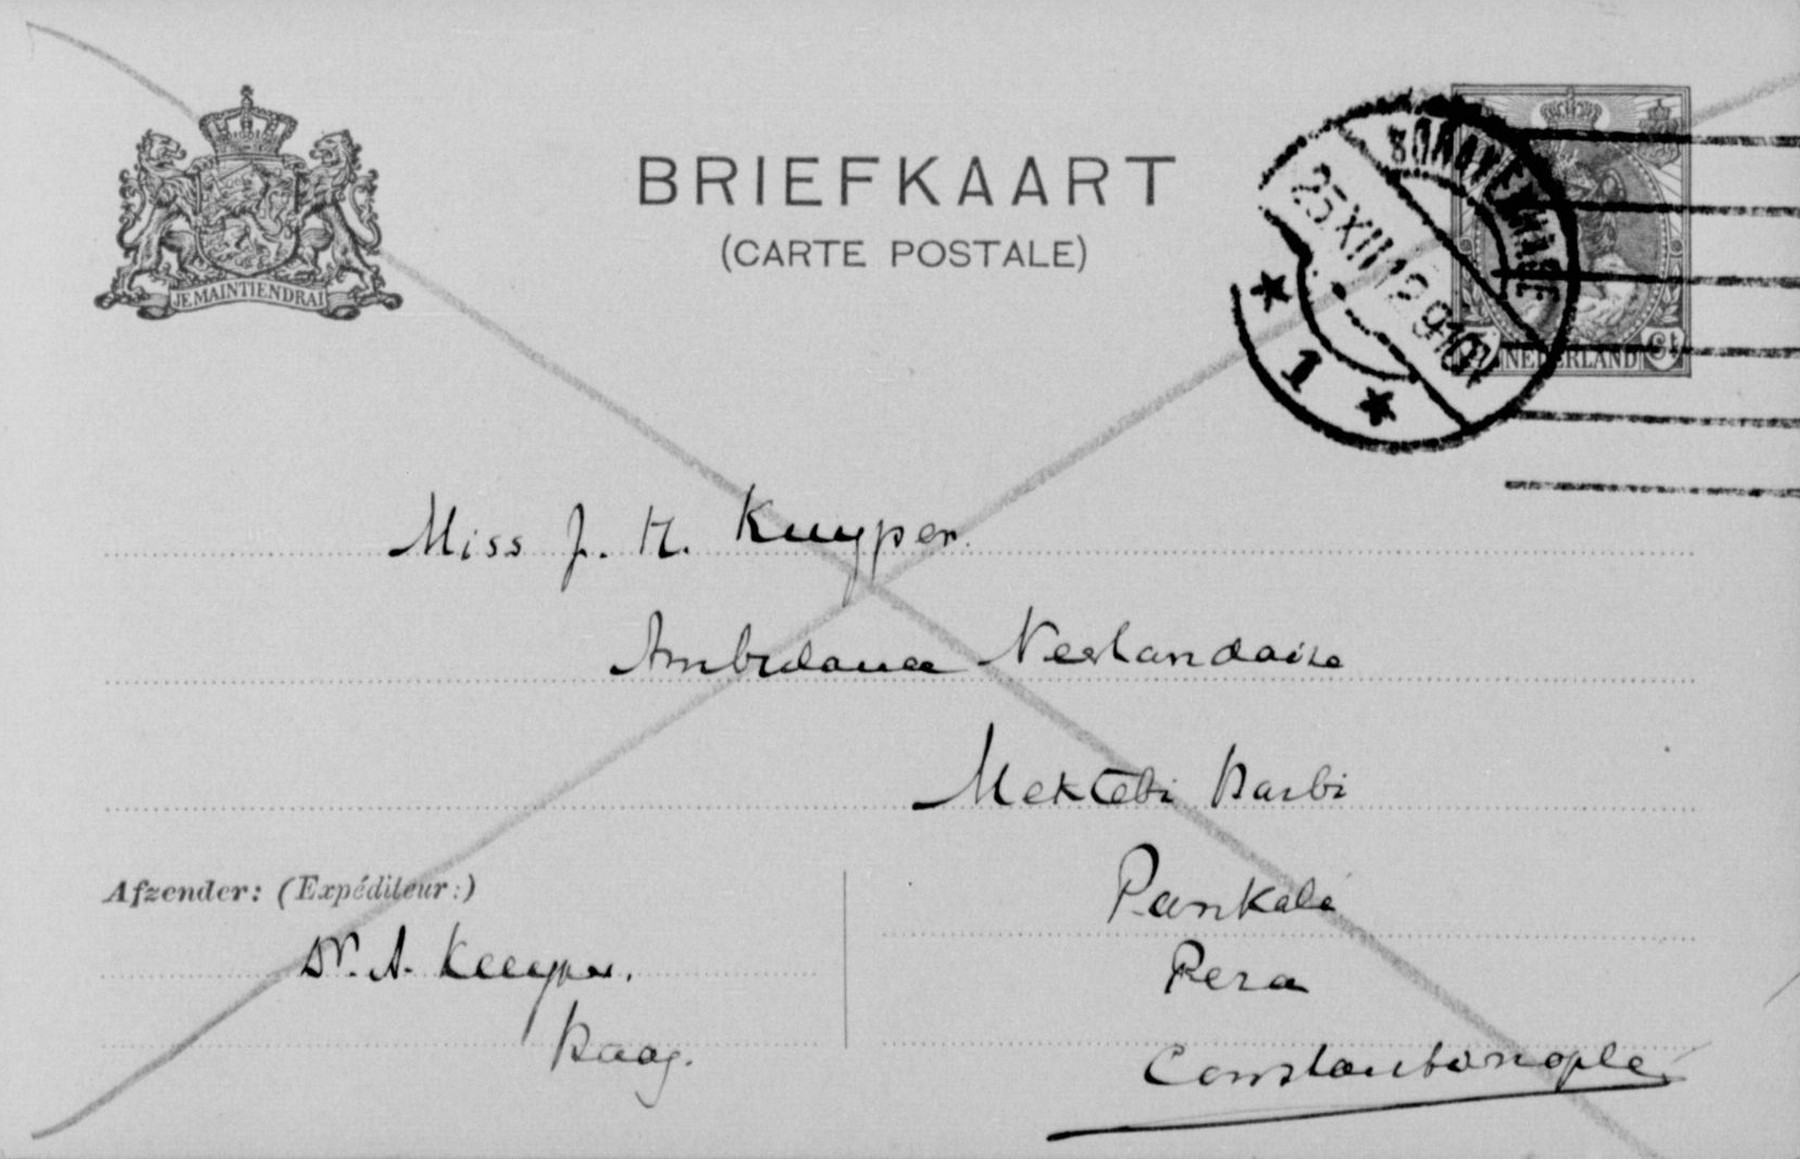 JE MAINTIENDRAI
BRIEFKAART
(CARTE POSTALE)
25 XII 12 9-10
1
NEDERLAND
Miss J. H. Kuyper.
Ambulance Neerlandaise
Mektebi Harbi
Pankaldi
Pera
Constantinople.
Afzender: (Expéditeur:)
Dr. A. Kuyper.
Haag.